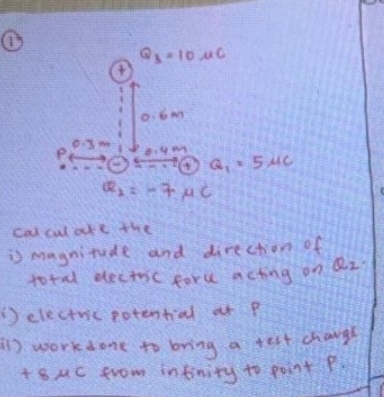 ①
Q₃ = 10 μC
+
0.6m
0.3m
0.4m
P
-
+
Q₁ = 5 μC
Q₂ = -7 μC
Calculate the
i) magnitude and direction of
total electric force acting on Q₂.
i) electric potential at P
ii) workdone to bring a test charge
+8 μC from infinity to point P.